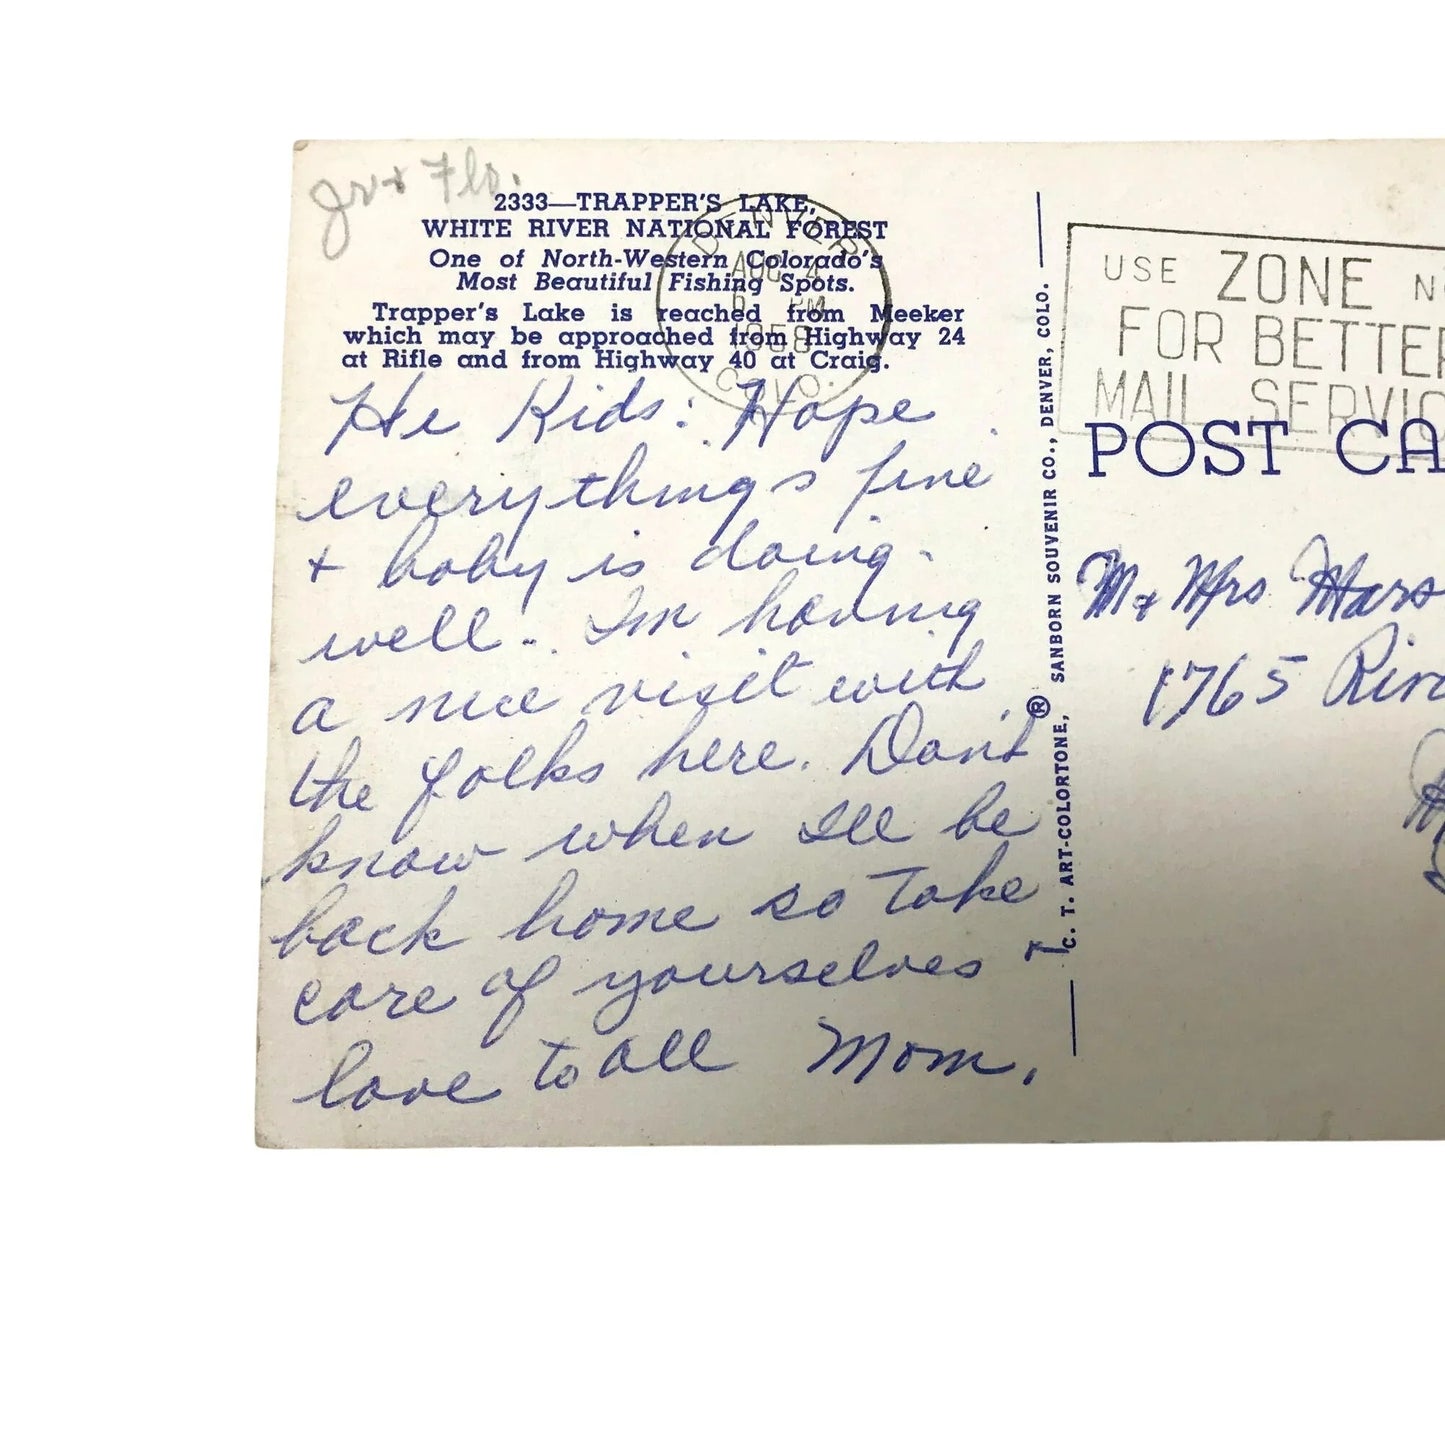 Jr + Flo.
2333—TRAPPER'S LAKE,
WHITE RIVER NATIONAL FOREST
One of North-Western Colorado's
Most Beautiful Fishing Spots.
Trapper's Lake is reached from Meeker
which may be approached from Highway 24
at Rifle and from Highway 40 at Craig.
DENVER
AUG 4
6 PM
1958
COLO.
Hi Kids: Hope
everythings fine
+ baby is doing
well. I'm having
a nice visit with
the folks here. Don't
know when I'll be
back home so take
care of yourselves +
love to all Mom.
C. T. ART-COLORTONE, ® SANBORN SOUVENIR CO., DENVER, COLO.
USE ZONE N
FOR BETTER
MAIL SERVIC
POST CA
M + Mrs Mars
1765